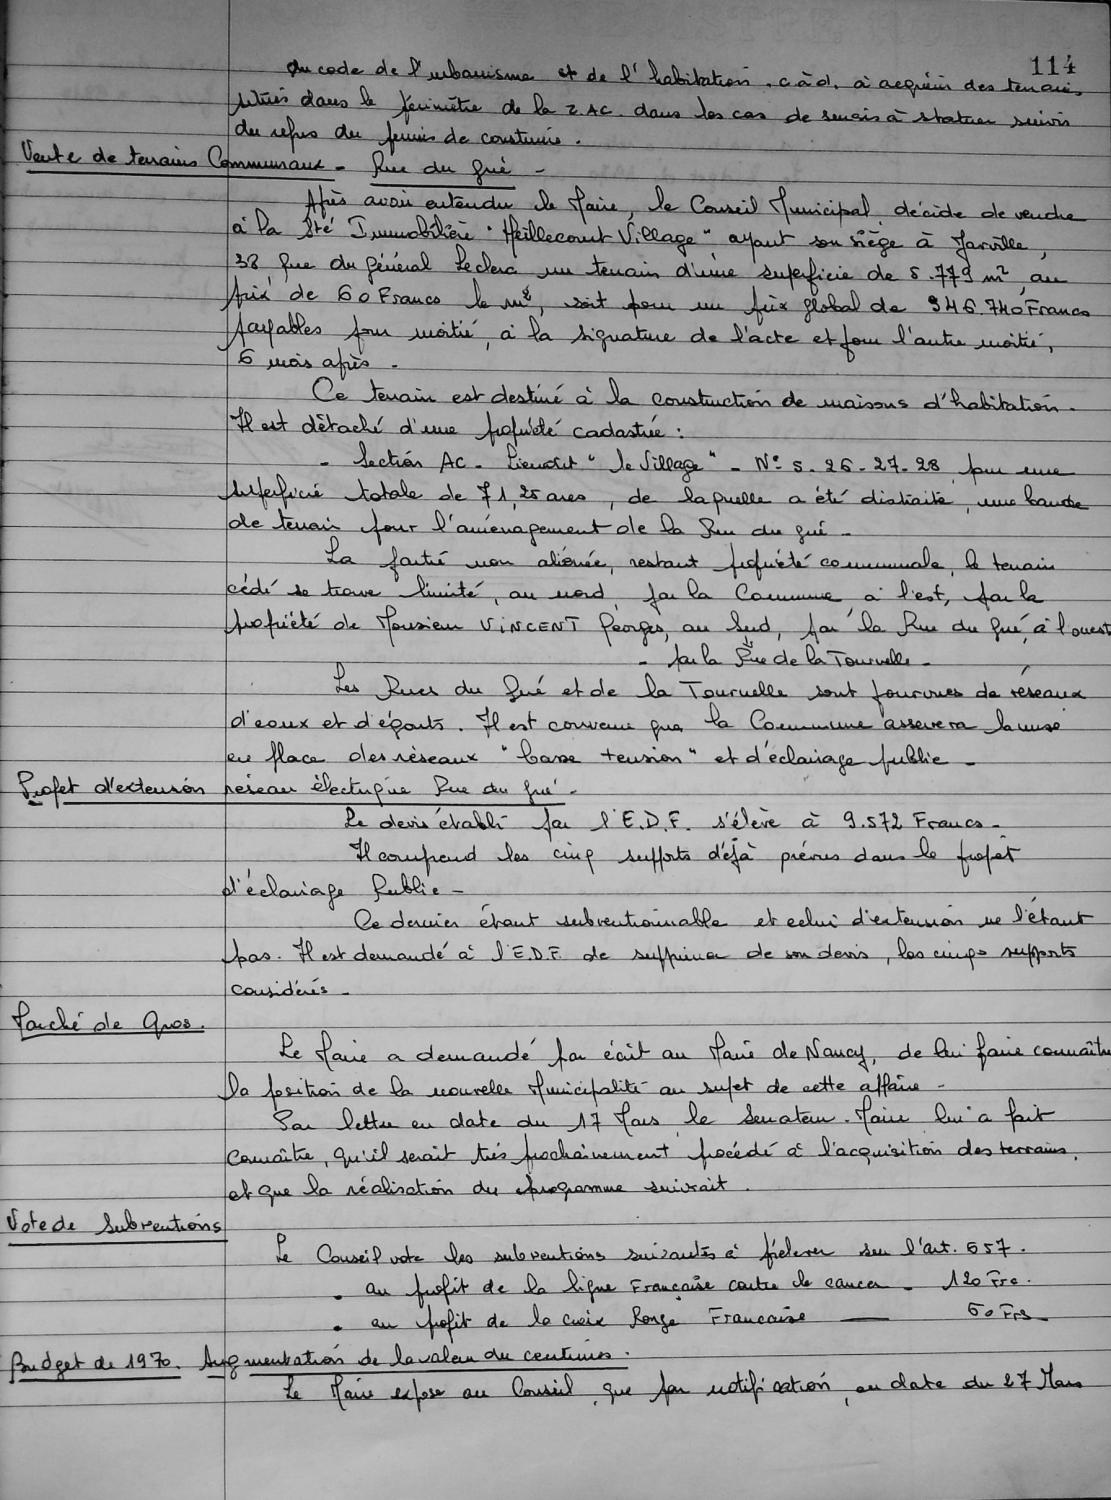 114
du code de l'urbanisme et de l'habitation. c.à.d. à acquérir des terrains
situés dans le périmètre de la Z.AC. dans les cas de sursis à statuer suivis
du refus du permis de construire.
Vente de terrains Communaux - Rue du Gué -
Après avoir entendu le Maire, le Conseil Municipal décide de vendre
à la Sté Immobilière "Heillecourt Village" ayant son siège à Jarville,
38, Rue du Général Leclerc un terrain d'une superficie de 5.779 m², au
prix de 60 Francs le m², soit pour un prix global de 346.740 Francs
payables pour moitié, à la signature de l'acte et pour l'autre moitié,
6 mois après.
Ce terrain est destiné à la construction de maisons d'habitation.
Il est détaché d'une propriété cadastrée :
- Section AC - Lieudit "le Village" - N° 5-26-27-28 pour une
superficie totale de 71,25 ares, de laquelle a été distraite, une bande
de terrain pour l'aménagement de la Rue du gué -
La partie non aliénée, restant propriété communale, le terrain
cédé se trouve limité, au nord par la Commune, à l'est, par la
propriété de Monsieur VINCENT Georges, au Sud, par la Rue du Gué, à l'ouest
- par la Rue de la Tournelle -
Les Rues du Gué et de la Tournelle sont pourvues de réseaux
d'eaux et d'égouts. Il est convenu que la Commune assurera la mise
en place des réseaux "basse tension" et d'éclairage public -
Projet d'extension réseau électrique Rue du Gué -
Le devis établi par l'E.D.F. s'élève à 9.572 Francs -
Il comprend les cinq supports déjà prévus dans le projet
d'éclairage Public -
Ce dernier étant subventionnable et celui d'extension ne l'étant
pas. Il est demandé à l'E.D.F. de supprimer de son devis, les cinqs supports
considérés -
Marché de Gros.
Le Maire a demandé par écrit au Maire de Nancy, de lui faire connaître
la position de la nouvelle Municipalité au sujet de cette affaire -
Par lettre en date du 17 Mars le Senateur-Maire lui a fait
connaître, qu'il serait très prochainement procédé à l'acquisition des terrains,
et que la réalisation du programme suivrait.
Vote de Subventions
Le Conseil vote les subventions suivantes à prélever sur l'art. 657.
- au profit de la ligue Française contre le cancer - 120 Frs.
- au profit de la croix Rouge Francaise — 60 Frs
Budget de 1970. Augmentation de la valeur du centime.
Le Maire expose au Conseil, que par notification, en date du 27 Mars